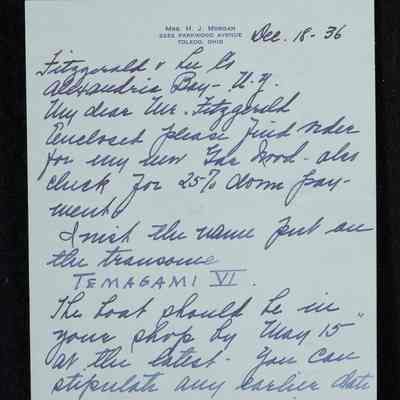 Mrs. H. J. Morgan
Parkwood Avenue
Toledo, Ohio
Dec. 18-36
Fitzgerald & Lee Co
Alexandria Bay - N.Y.
My dear Mr. Fitzgerald
Enclosed please find order
for my new Gar Wood - also
check for 25% down pay-
ment.
I wish the name put on
the transome
TEMAGAMI VI.
The boat should be in
your shop by May 15"
at the latest - You can
stipulate any earlier date